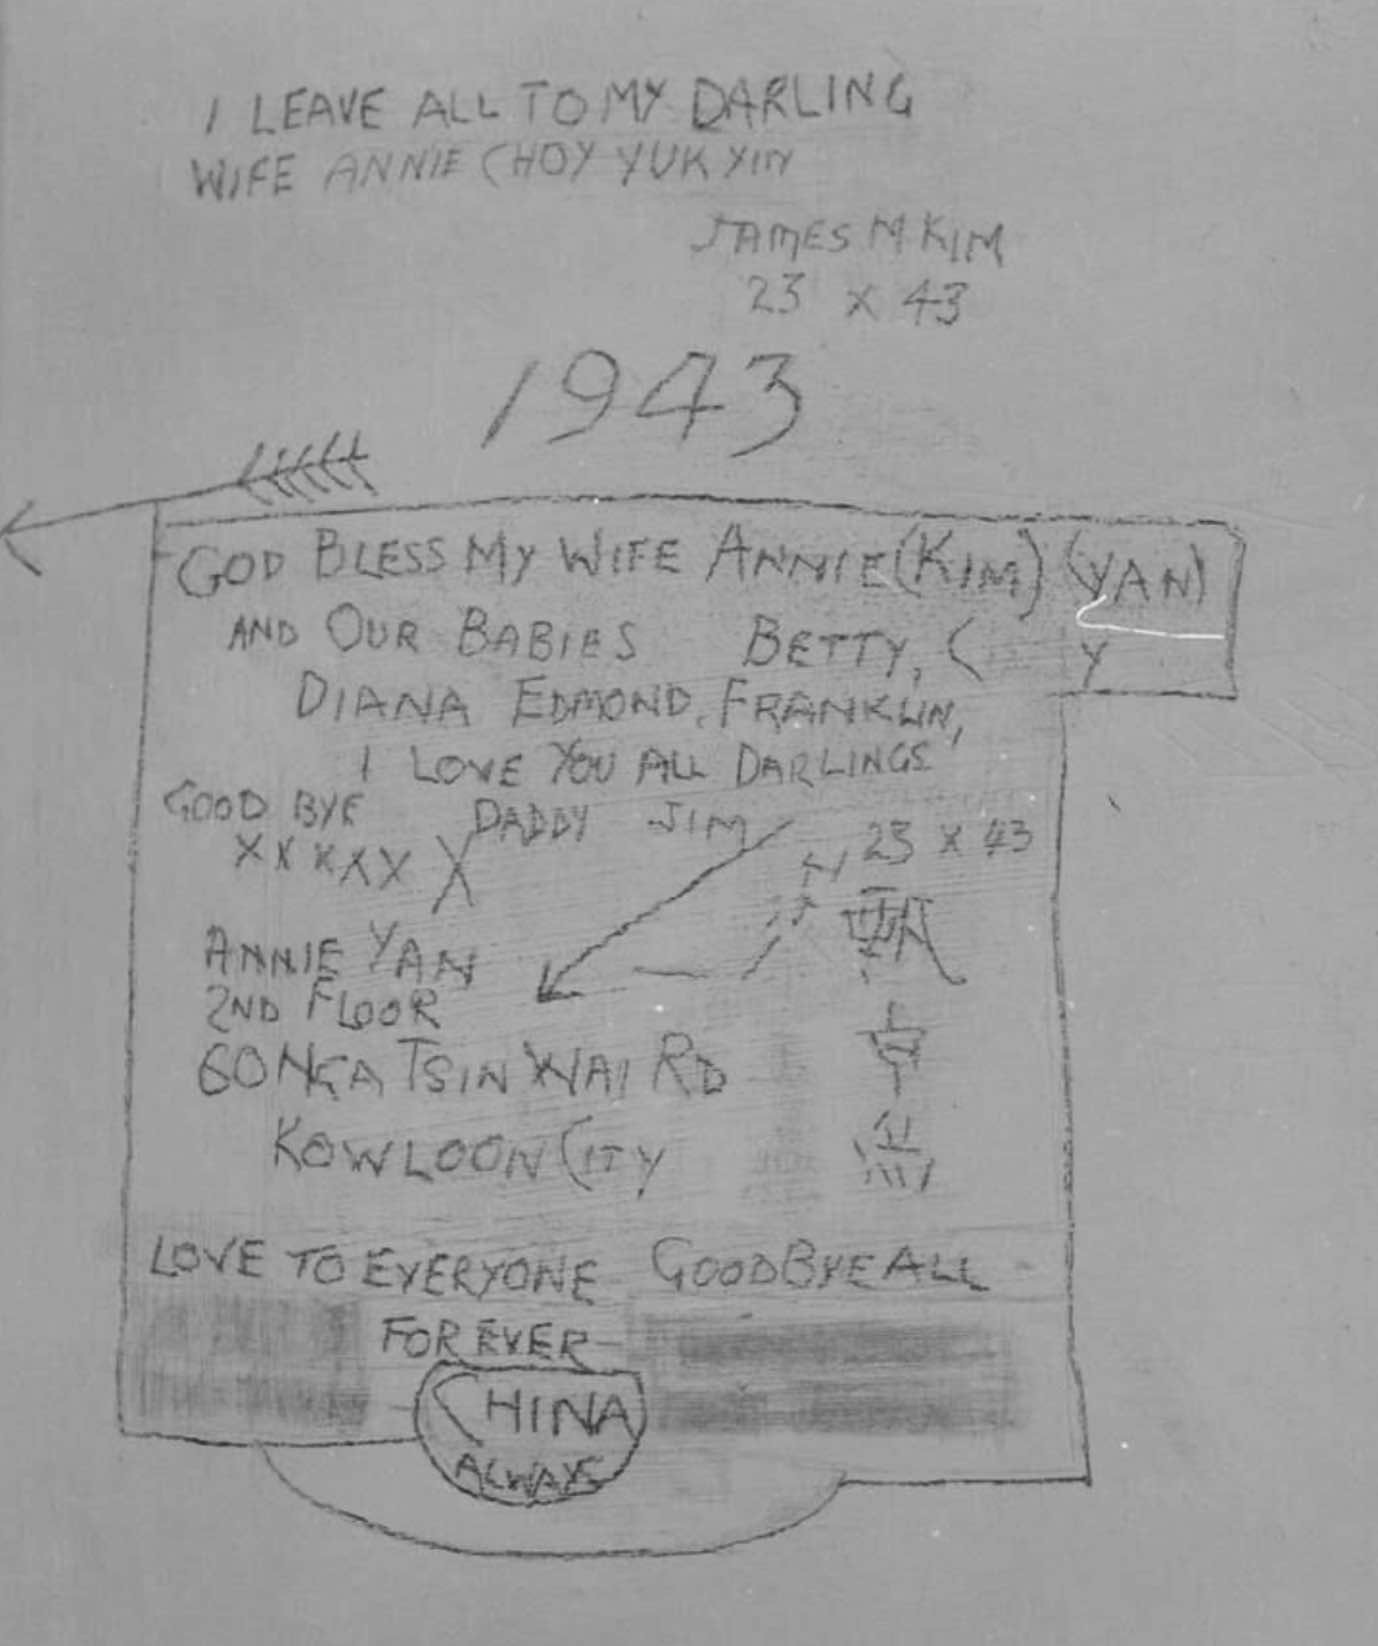 I LEAVE ALL TO MY DARLING
WIFE ANNIE CHOY YUK YIN
JAMES M KIM
23 X 43
1943
GOD BLESS MY WIFE ANNIE (KIM) (YAN)
AND OUR BABIES BETTY, ( Y
DIANA EDMOND, FRANKLIN,
I LOVE YOU ALL DARLINGS
GOOD BYE DADDY JIM 23 X 43
X X X X X X
ANNIE YAN
2ND FLOOR
60 NGA TSIN WAI RD
KOWLOON CITY
LOVE TO EVERYONE GOODBYE ALL
FOR EVER
CHINA
ALWAYS